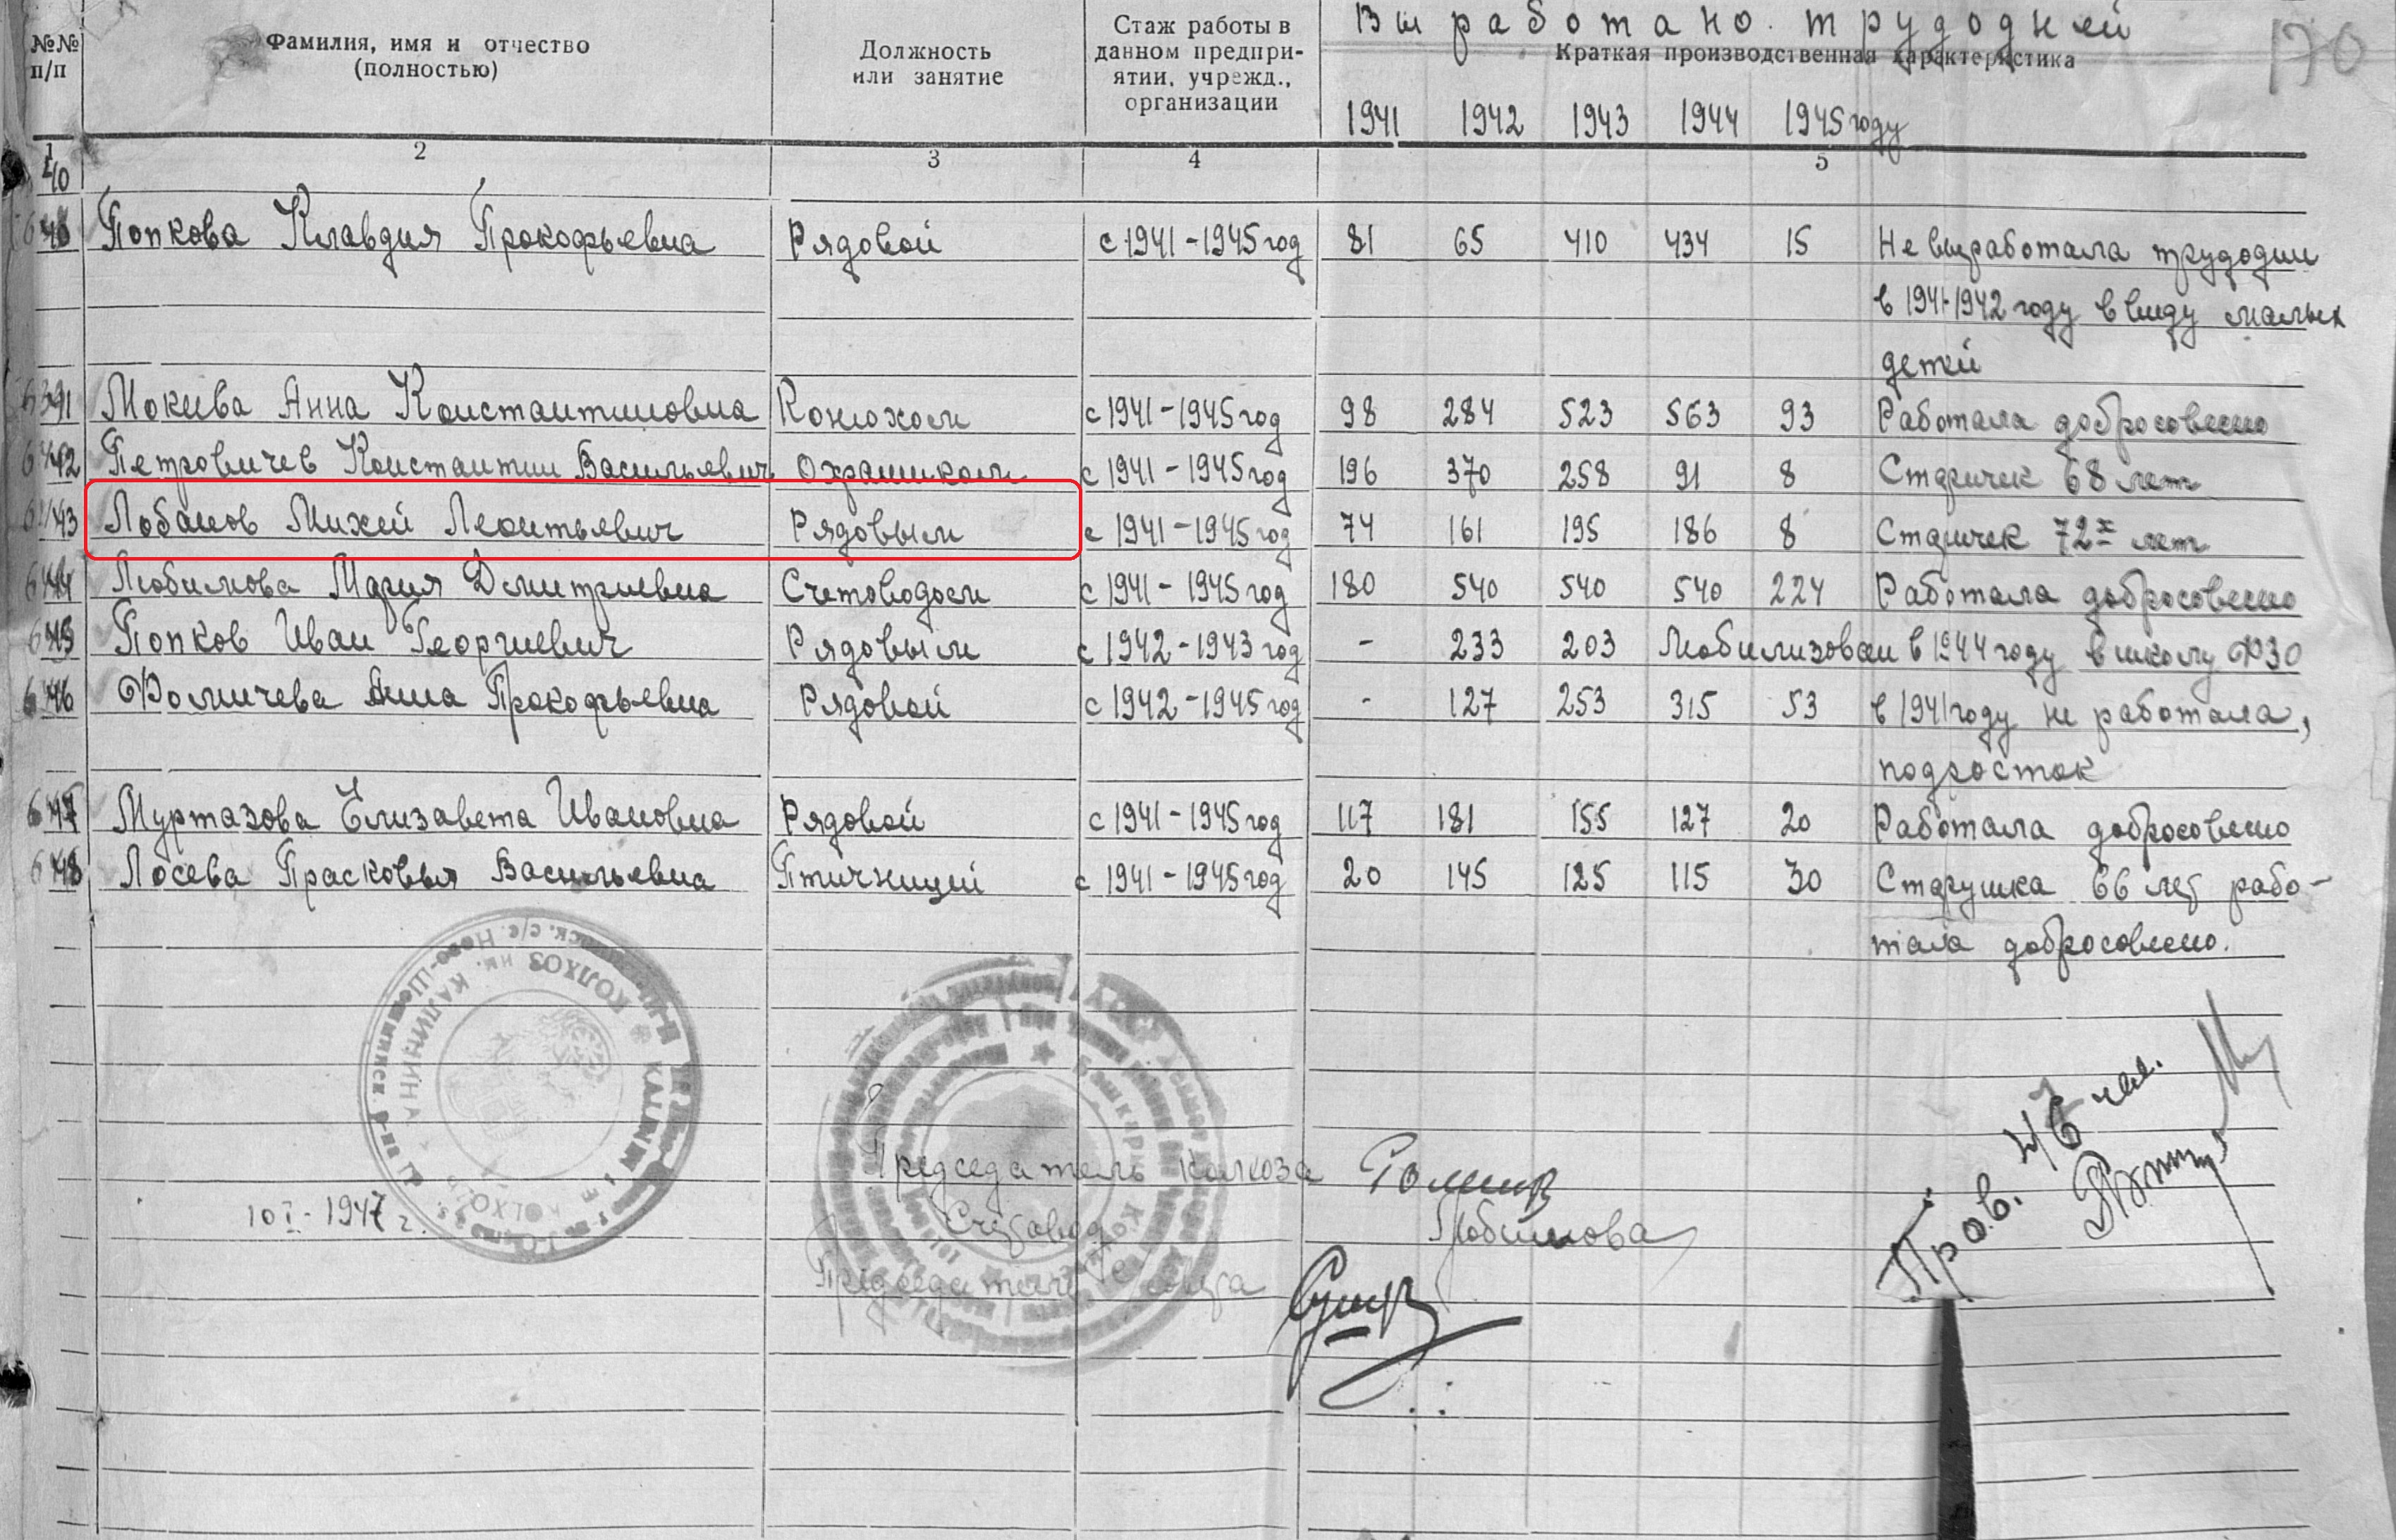 Выработано трудодней
170
№№ п/п
Фамилия, имя и отчество (полностью)
Должность или занятие
Стаж работы в данном предприятии, учрежд., организации
Краткая производственная характеристика
1941 1942 1943 1944 1945 году
1 2 3 4 5
40 Попкова Клавдия Прокофьевна Рядовой с 1941-1945 год 81 65 410 434 15 Не выработала трудодни
в 1941-1942 году ввиду малых
детей
41 Мокеева Анна Константиновна Конюхом с 1941-1945 год 98 284 523 563 93 Работала добросовесно
42 Петровичев Константин Васильевич Охраником с 1941-1945 год 196 370 258 91 8 Старичек 68 лет
43 Лобанов Михей Леонтьевич Рядовым с 1941-1945 год 74 161 195 186 8 Старичек 72х лет
44 Любимова Мария Дмитриевна Счетоводом с 1941-1945 год 180 540 540 540 224 Работала добросовесно
45 Попков Иван Георгиевич Рядовым с 1942-1943 год - 233 203 Мобилизован в 1944 году в школу ФЗО
46 Фомичева Анна Прокофьевна Рядовой с 1942-1945 год - 127 253 315 53 в 1941 году не работала,
подросток
47 Муртазова Елизавета Ивановна Рядовой с 1941-1945 год 117 181 155 127 20 Работала добросовесно
48 Лосева Прасковья Васильевна Птичницей с 1941-1945 год 20 145 125 115 30 Старушка 66 лет рабо-
тала добросовесно.
КОЛХОЗ им. КАЛИНИНА
Председатель колхоза
Счетовод Любимова
Председатель с/совета
10 I - 1947 г.
Прав. чел.